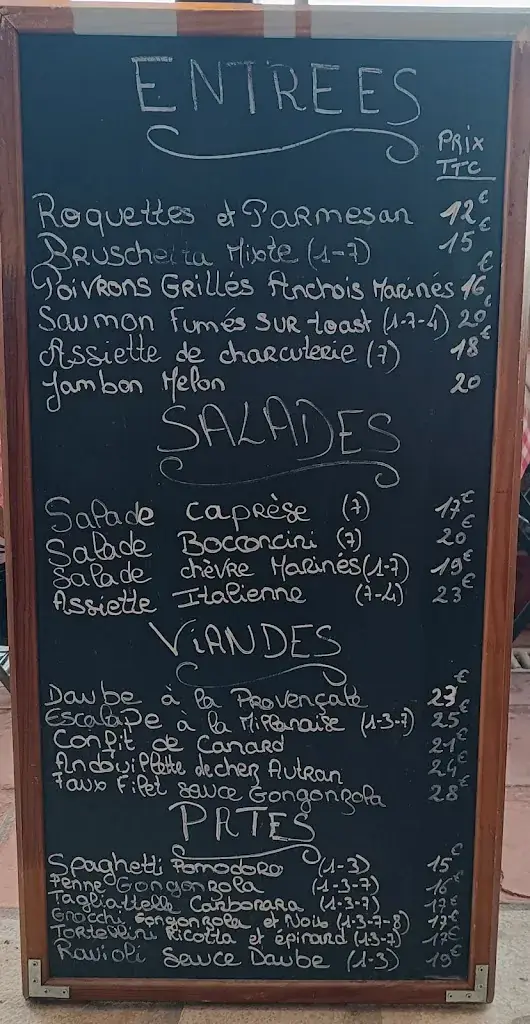 ENTREES
PRIX
TTC
Roquettes et Parmesan 12€
Bruschetta Mixte (1-7) 15€
Poivrons Grillés Anchois Marinés 16€
Saumon Fumés sur toast (1-7-4) 20€
Assiette de charcuterie (7) 18€
Jambon Melon 20
SALADES
Salade Caprèse (7) 17€
Salade Bocconcini (7) 20€
Salade chèvre Marinés (1-7) 19€
Assiette Italienne (7-4) 23€
ViANDES
Daube à la Provençale 23€
Escalope à la Milanaise (1-3-7) 25€
Confit de Canard 21€
Andouillette de chez Autran 24€
Faux Filet sauce Gongonzola 28€
PATES
Spaghetti Pomodoro (1-3) 15€
Penne Gongonzola (1-3-7) 16€
Tagliattelle Carbonara (1-3-7) 17€
Gnocchi Gongonzola et Noix (1-3-7-8) 17€
Tortellini Ricotta et épinard (1-3-7) 17€
Ravioli Sauce Daube (1-3) 19€